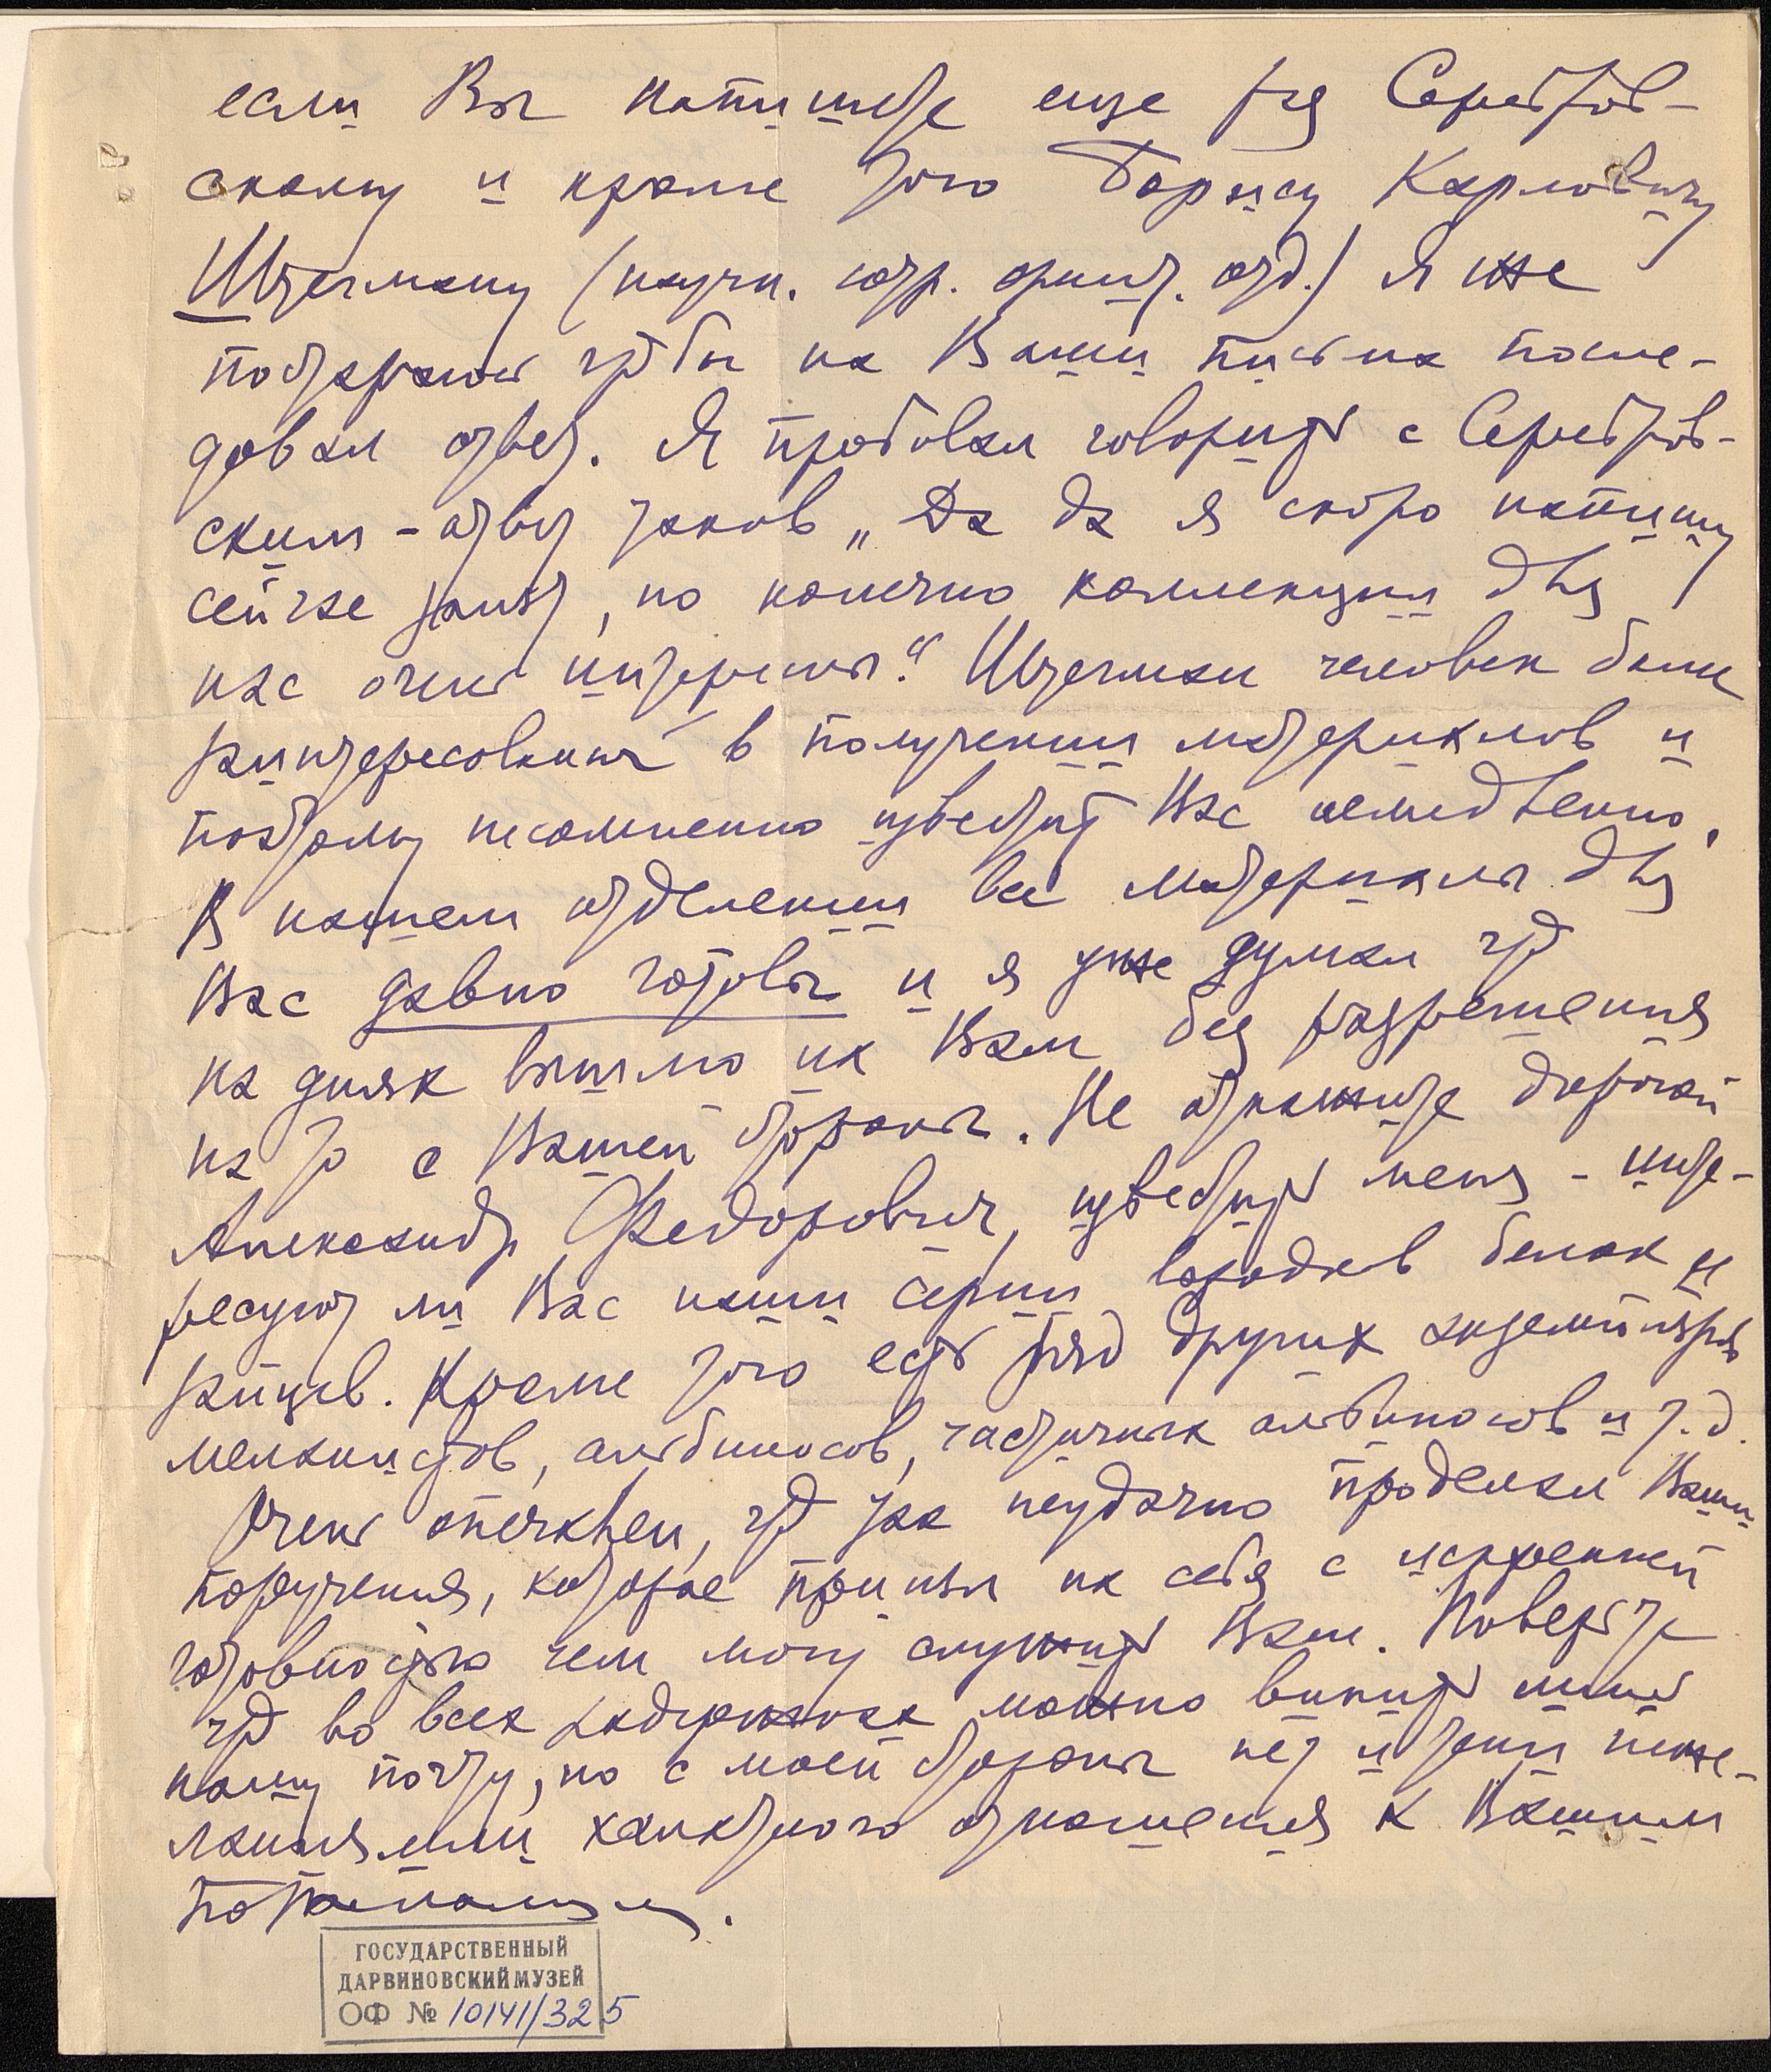 если Вы напишете еще раз Серебров-
скому и кроме того Борису Карловичу
Штегману (научн. сотр. орнит. отд.) Я же
постараюсь чтобы на Ваши письма после-
довал ответ. Я пробовал говорить с Серебров-
ским – ответ таков „Да да я скоро напишу
сейчас занят, но конечно коллекции для
нас очень интересны“. Штегман человек более
заинтересованный в получении материалов и
поэтому несомненно известит Вас немедленно.
В нашем отделении все материалы для
Вас давно готовы и я уже думал что
на днях вышлю их Вам без разрешения
на то с Вашей стороны. Не откажите дорогой
Александр Федорович, известить меня – инте-
ресуют ли Вас наши серии уродов белок и
зайцев. Кроме того есть ряд других экземпляров
меланистов, альбиносов, частичных альбиносов и т.д.
Очень опечален, что так неудачно проделал Ваши
поручения, которые принял на себя с искренней
готовностью чем могу служить Вам. Поверьте
что во всех задержках можно винить лишь
нашу почту, но с моей стороны нет и тени неже-
лания или халатного отношения к Вашим
ГОСУДАРСТВЕННЫЙ
ДАРВИНОВСКИЙ МУЗЕЙ
ОФ № 10141/325